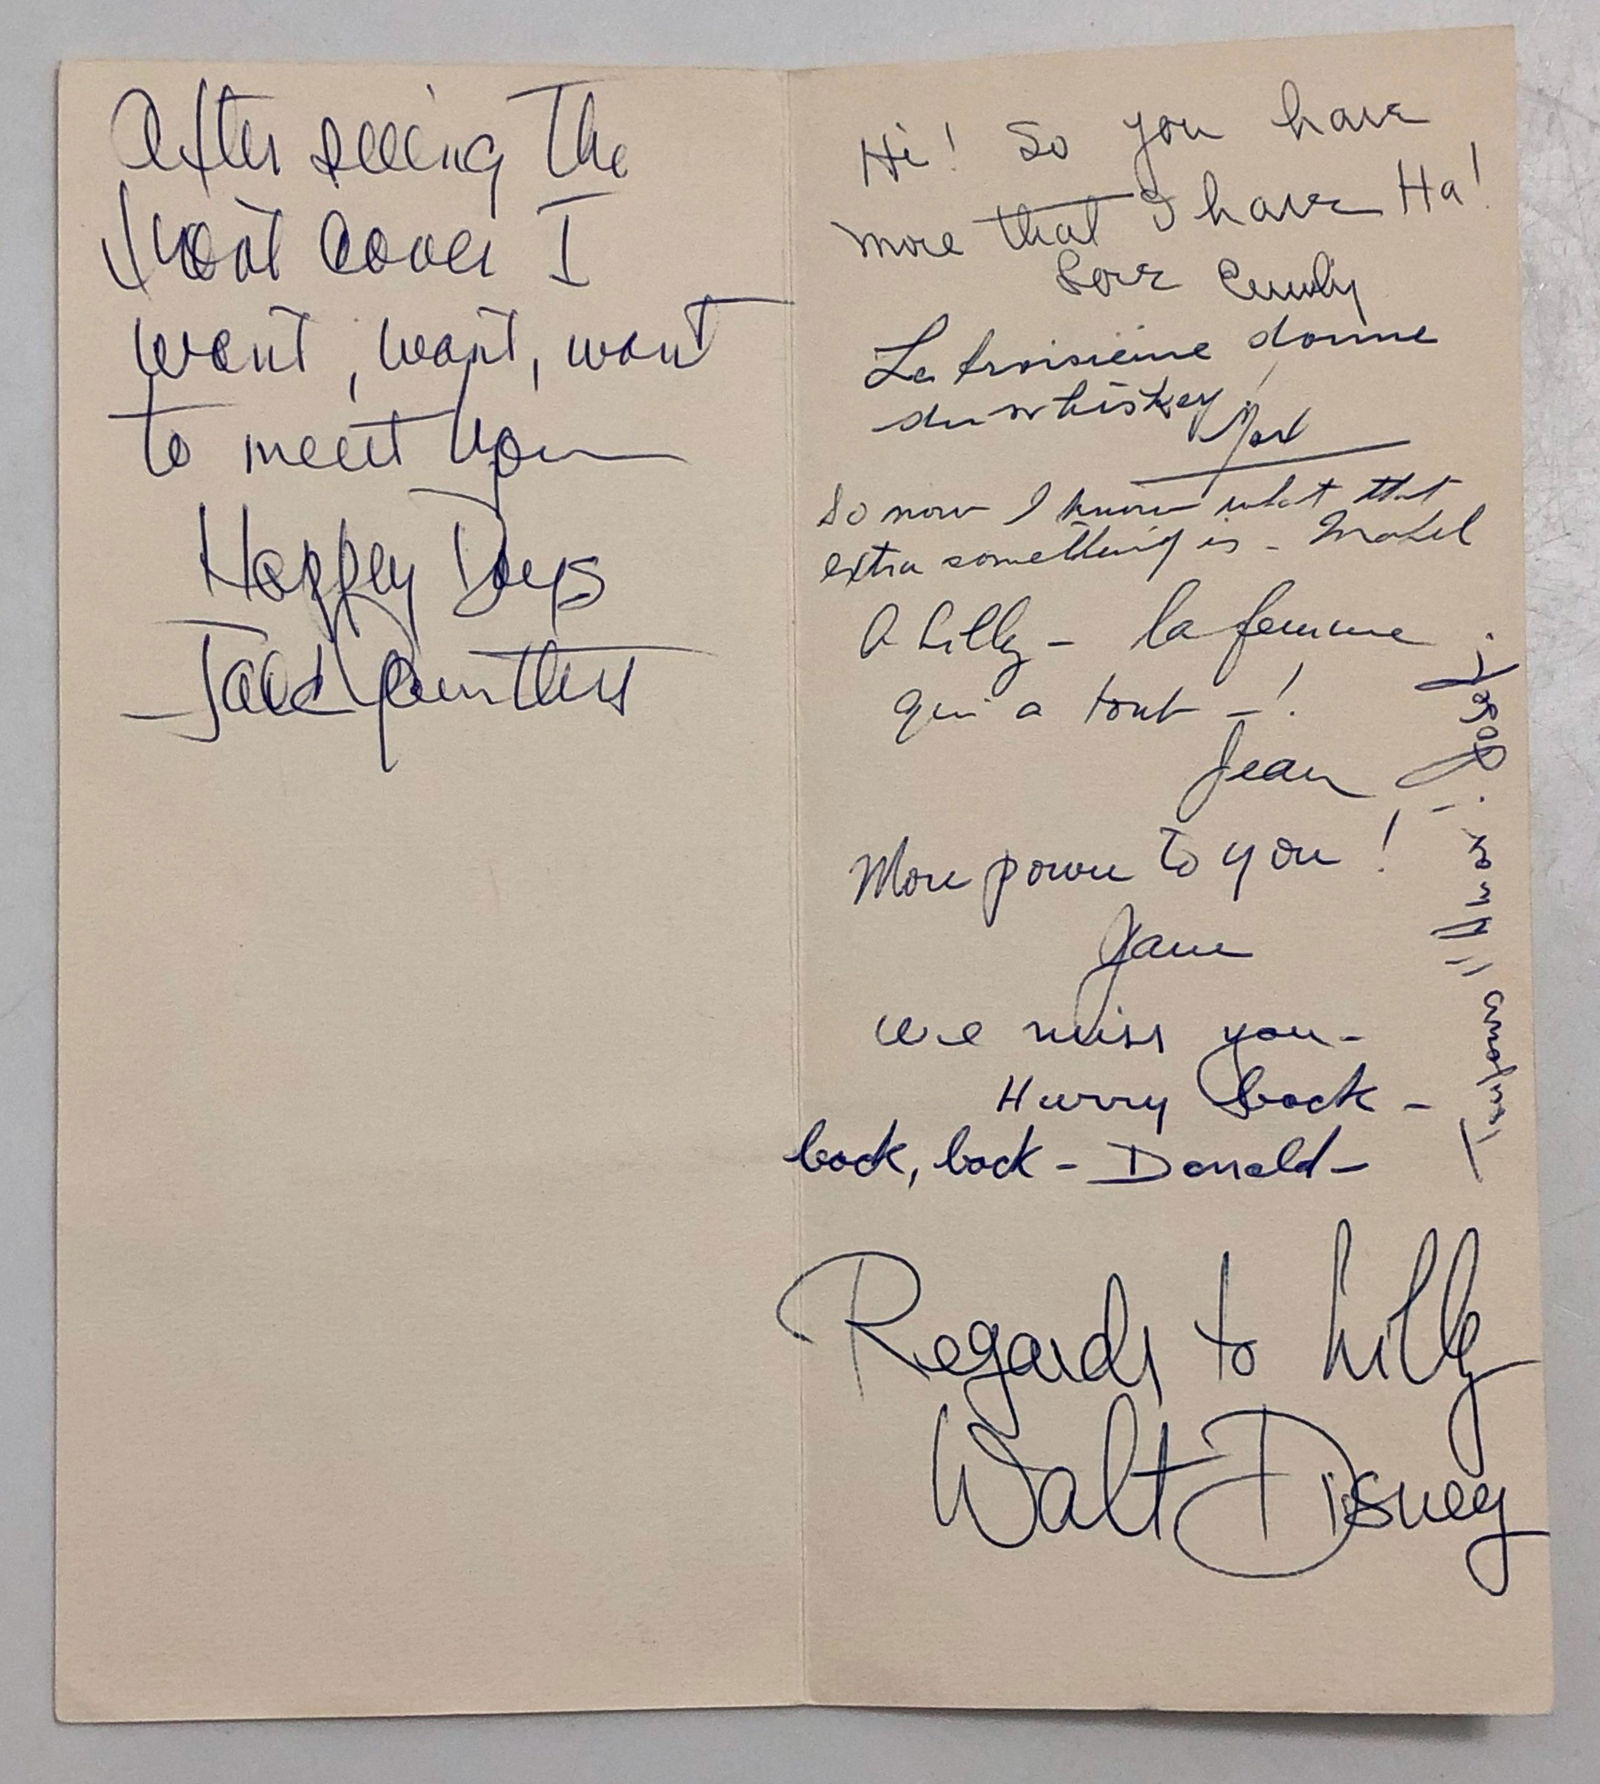 After seeing The
front cover I
want, want, want
to meet you
Happy Days
Jack
Hi! So you have
more that I have Ha!
Love
La troisième donne
du whiskey!
So now I know what that
extra something is - Mabel
A Lilly - la femme
qui a tout - !
Jean
More power to you!
Jane
We miss you -
Hurry back -
back, back - Donald -
Regards to Lilly
Walt Disney